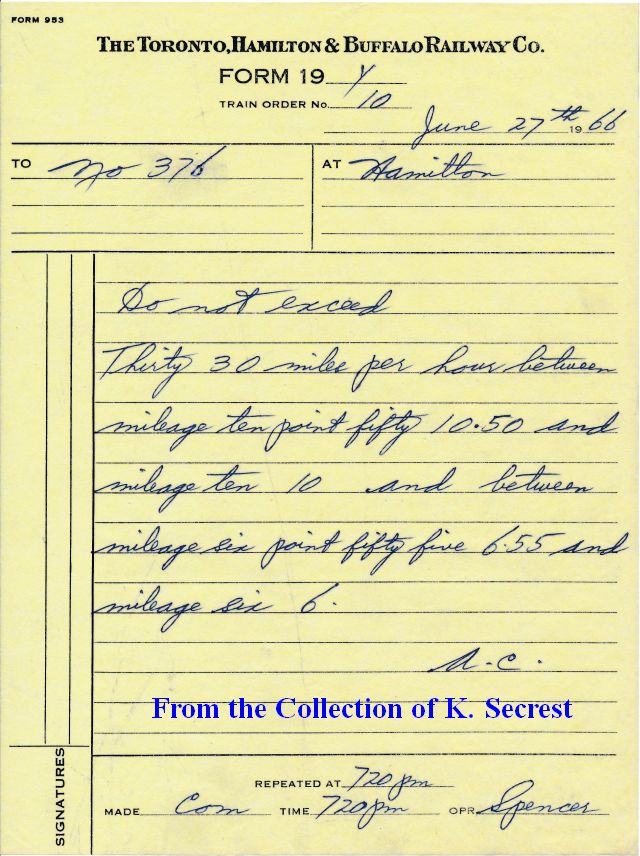 FORM 953
THE TORONTO, HAMILTON & BUFFALO RAILWAY CO.
FORM 19 Y
TRAIN ORDER No. 10
June 27th 1966
TO No 376 AT Hamilton
Do not exceed
Thirty 30 miles per hour between
mileage ten point fifty 10.50 and
mileage ten 10 and between
mileage six point fifty five 6.55 and
mileage six 6.
A.C.
From the Collection of K. Secrest
SIGNATURES
REPEATED AT 720 pm
MADE Com TIME 720 pm OPR. Spencer